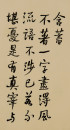 含蓄
不著一字盡得風
流語不涉己若不
堪憂是有真宰與